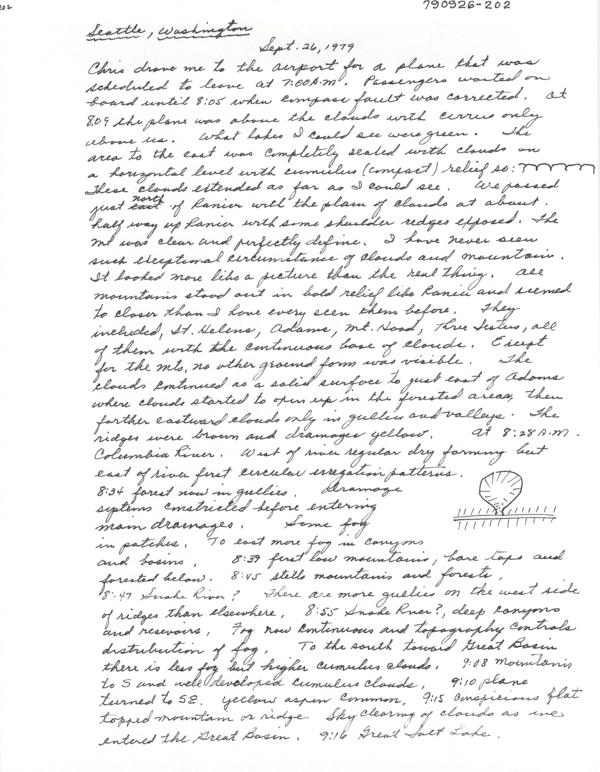 202
790926-202
Seattle, Washington
Sept. 26, 1979
Chris drove me to the airport for a plane that was
scheduled to leave at 7:00 A.M. Passengers waited on
board until 8:05 when compass fault was corrected. At
8:09 the plane was above the clouds with cirrus only
above us. What lakes I could see were green. The
area to the east was completely sealed with clouds on
a horizontal level with cumulus (compact) relief so:
These clouds extended as far as I could see. We passed
just east north of Ranier with the plain of clouds at about
half way up Ranier with some shoulder redges exposed. The
mt was clear and perfectly define. I have never seen
such exceptional circumstance of clouds and mountain.
It looked more like a picture than the real thing. All
mountains stood out in bold relief like Ranier and seemed
to closer than I have every seen them before. They
included, St. Helens, Adams, Mt. Hood, Three Sisters, all
of them with the continuous base of clouds. Except
for the mts, no other ground form was visible. The
clouds continued as a solid surface to just east of Adams
where clouds started to open up in the forested areas, then
farther eastward clouds only in gullies and valleys. The
ridges were brown and dramages yellow. At 8:28 A.M.
Columbia River. West of river regular dry farming but
east of river first circular irregation patterns.
8:34 forest now in gullies. Dramage
systems constricted before entering
main dramages. Some fog
in patches. To east more fog in canyons
and basins. 8:39 first low mountains, bare tops and
forested below. 8:45 stells mountains and forests,
8:47 Snake River? There are more gullies on the west side
of ridges than elsewhere. 8:55 Snake River?, deep canyons
and resevoirs. Fog now continuous and topography controls
distribution of fog. To the south toward Great Basin
there is less fog but higher cumulus clouds. 9:08 mountains
to S and well developed cumulus clouds. 9:10 plane
turned to SE. Yellow aspen common, 9:15 conspicious flat
topped mountain or ridge Sky clearing of clouds as we
entered the Great Basin. 9:16 Great Salt Lake.